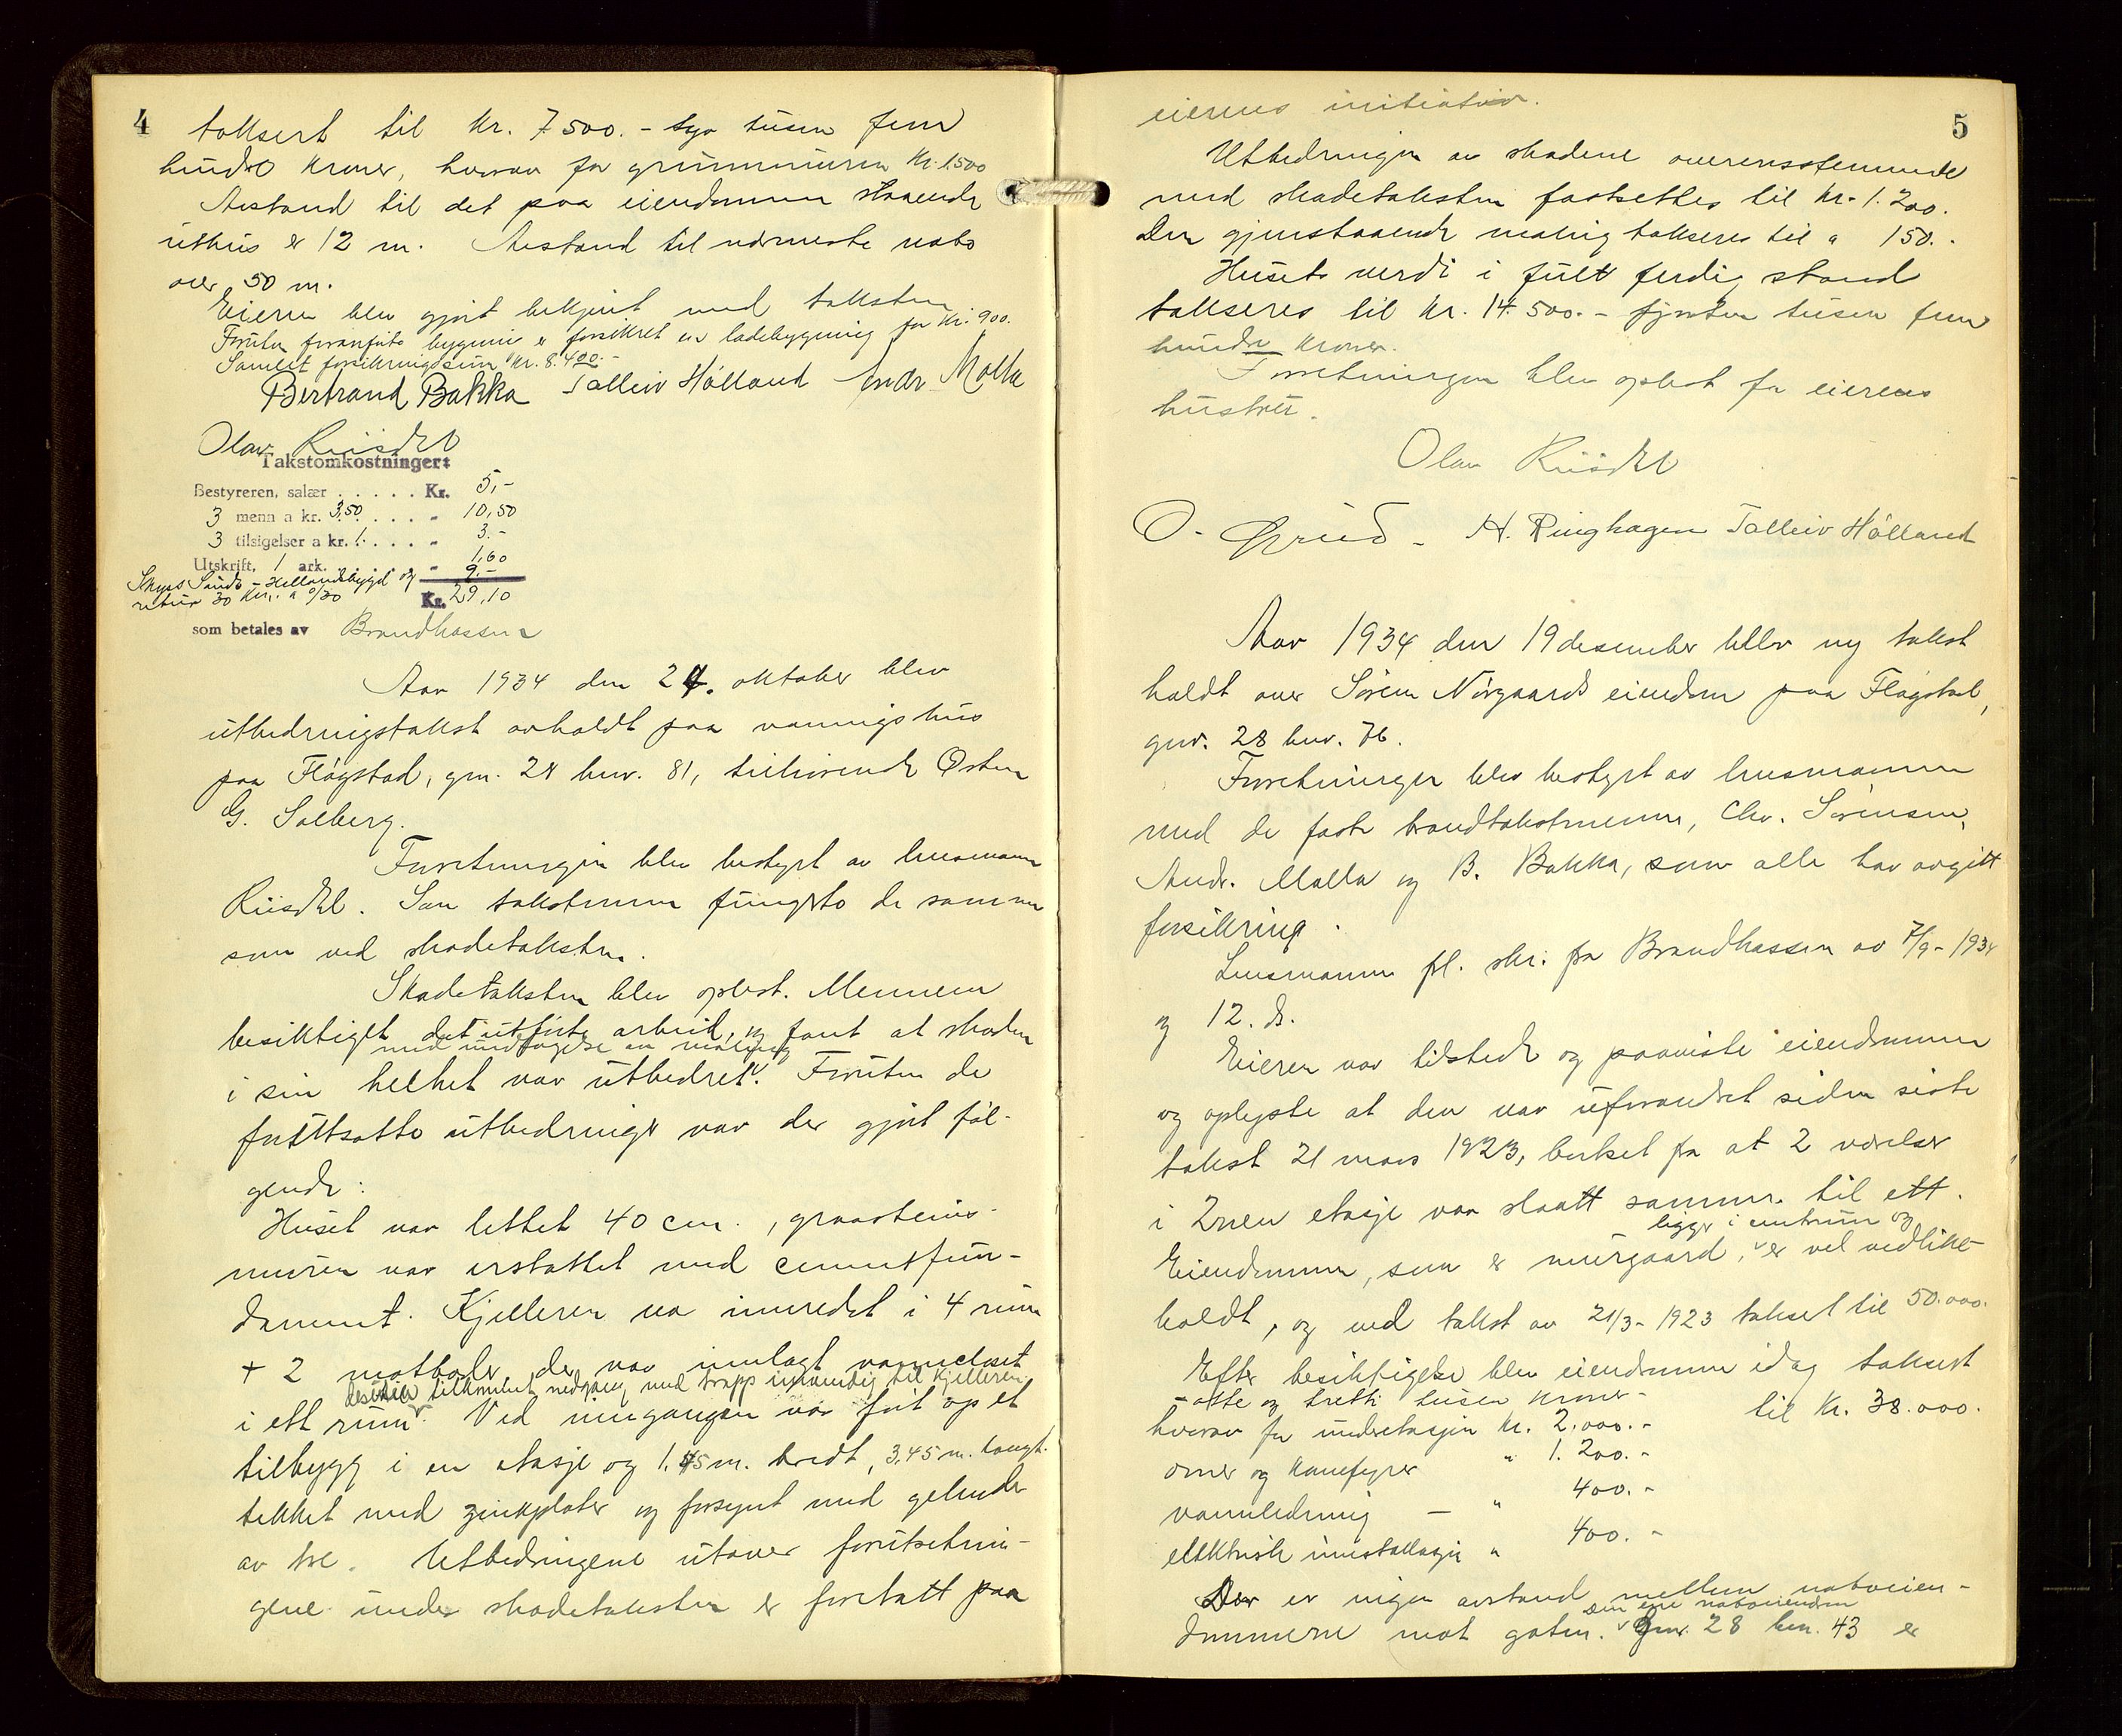 4
taksert til kr. 7500.- syv tusen fem
hundre kroner, hvorav for grunnmuren kr. 1500
Avstand til det paa eiendommen staaende
uthus er 12 m. Avstand til nærmeste nabo
over 50 m.
Eieren blev gjort bekjent med taksten
Foruten foranførte bygning er forsikret en ladebygning for kr. 900.
Samlet forsikringssum kr. 8.400.-
Bertrand Bakka Tolleiv Hölland Andr. Molla
Olav Riisdal
Takstomkostninger:
Bestyreren, salær . . . . . Kr. 5,-
3 menn a kr. 3,50 . . . . - 10,50
3 tilsigelser a kr. 1. . . . . - 3.-
Utskrift, 1 ark. - 1,60
Skyss Sand - Hellandsbygd og 9.-
retur 30 km. a 0/30 Kr. 29,10
som betales av Brandkassen
Aar 1934 den 24. oktober blev
utbedringstakst avholdt paa vaaningshus
paa Fløgstad, gnr. 28 bnr. 81, tilhørende Østen
G. Solberg.
Forretningen blev bestyrt av lensmann
Riisdal. Som takstmenn fungerte de samme
som ved skadetaksten.
Skadetaksten blev oplest. Mennene
besiktiget det utførte arbeid, og fant at skaden
med undtagelse av maling
i sin helhet var utbedret. Foruten de
forutsatte utbedringer var der gjort føl-
gende:
Huset var lettet 40 cm., graasteins-
muren var erstattet med cementfun-
dament. Kjelleren var innredet i 4 rum
+ 2 matboder der var innlagt vannclosett
desuten tilkommet nedgang med trapp innvendig til kjelleren
i ett rum. Ved inngangen var ført op et
tilbygg i en etasje og 1.45 m. bredt, 3,45 m. langt
tekket med zinkplater og forsynt med gelender
av tre. Utbedringene utover forutsetnin-
gene under skadetaksten er foretatt paa
5
eierens initiativ.
Utbedringen av skadene overensstemmende
med skadetaksten fastsettes til kr. 1.200.
Den gjenstaaende maling takseres til " 150.-
Husets verdi i fullt ferdig stand
takseres til kr. 14.500.- fjorten tusen fem
hundre kroner.
Forretningen blev oplest for eierens
hustru.
Olav Riisdal
O. Grud - H. Ringhagen Tolleiv Hölland
Aar 1934 den 19 desember blev ny takst
holdt over Sören Nörgaards eiendom paa Fløgstad,
gnr. 28 bnr. 76.
Forretningen blev bestyrt av lensmannen
med de faste brandtakstmenn, Chr. Sörensen,
Andr. Molla og B. Bakka, som alle har avgitt
forsikring.
Lensmannen fl. skr. fra Brandkassen av 7/9-1934
og 12. ds.
Eieren var tilstede og paaviste eiendommen
og oplyste at den var uforandret siden siste
takst 21 mars 1923, bortset fra at 2 værelser
i 2nen etasje var slaatt sammen til ett.
ligger i centrum og
Eiendommen, som er murgaard, er vel vedlike-
holdt, og ved takst av 21/3-1923 taksert til 50.000.
Efter besiktigelse blev eiendommen idag taksert
- otte og tretti tusen kroner - til kr. 38.000.
hvorav for underetasjen kr. 2.000.-
ovner og kaminfyrer " 1.200.-
vannledning - " 400.-
elektrisk innstallasjon " 400.-
Der er ingen avstand mellem naboeien-
den ene naboeiendom
dommene mot gaten. Gnr. 28 bnr. 43 er